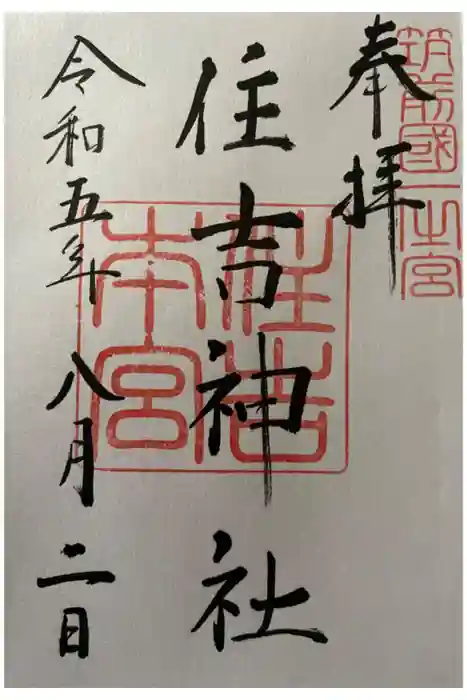 奉拝
筑前國一之宮
住吉神社
住吉本宮
令和五年八月二日